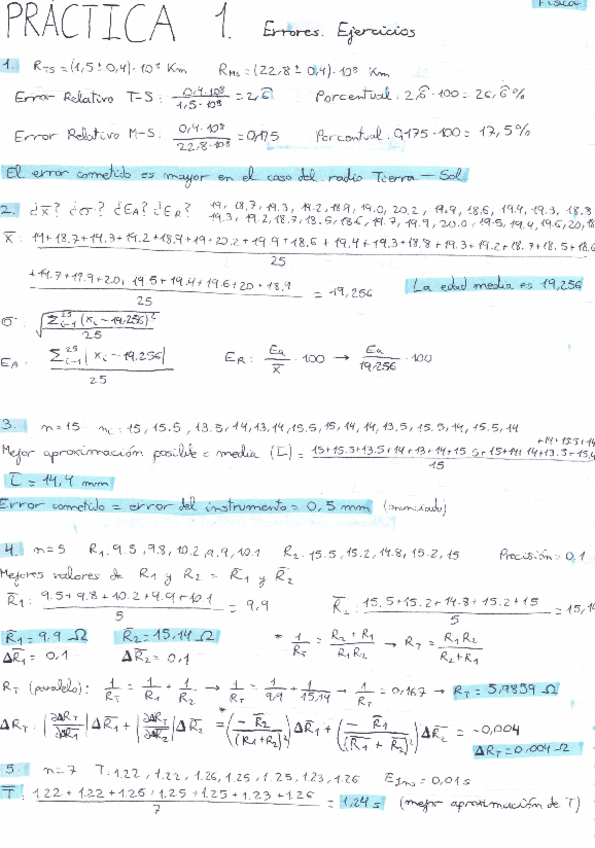 Física
PRÁCTICA 1. Errores. Ejercicios
1. R_TS = (1,5 ± 0,4)·10⁸ Km R_MS = (22,8 ± 0,4)·10⁸ Km
Error Relativo T-S: 0,4·10⁸ / 1,5·10⁸ = 2,6 Porcentual: 2,6·100 = 26,6%
Error Relativo M-S: 0,4·10⁸ / 22,8·10⁸ = 0,175 Porcentual: 0,175·100 = 17,5%
El error cometido es mayor en el caso del radio Tierra - Sol
2. ¿x̄? ¿σ? ¿E_A? ¿E_R? 19, 18.7, 19.3, 19.2, 18.9, 19.0, 20.2, 19.9, 18.6, 19.4, 19.3, 18.8
19.3, 19.2, 18.7, 18.5, 18.6, 19.7, 19.9, 20.0, 19.5, 19.4, 19.6, 20,
x̄: 19+18.7+19.3+19.2+18.9+19+20.2+19.9+18.6+19.4+19.3+18.8+19.3+19.2+18.7+18.5+18.6
25
+19.7+19.9+20, 19.5+19.4+19.6+20+18,9 / 25 = 19,256 La edad media es 19,256
σ: √(Σ²⁵ᵢ₌₁ (xᵢ - 19,256)² / 25)
E_A: Σ²⁵ᵢ₌₁ |xᵢ - 19.256| / 25 E_R: Ea / x̄ · 100 → Ea / 19,256 · 100
3. n=15 15, 15.5, 13.5, 14, 13, 14, 15.5, 15, 14, 14, 13.5, 15.5, 14, 15.5, 14
Mejor aproximación posible = media (L̄) = 15+15.5+13.5+14+13+14+15 / 15
L̄ = 14,4 mm
Error cometido = error del instrumento = 0,5 mm (enunciado)
4. n=5 R₁: 9.5, 9.8, 10.2, 9.9, 10.1 R₂: 15.5, 15.2, 14.8, 15.2, 15 Precisión = 0,1
Mejores valores de R₁ y R₂ = R̄₁ y R̄₂
R̄₁: 9.5+9.8+10.2+9.9+10.1 / 5 = 9,9 R̄₂: 15.5+15.2+14.8+15.2+15 / 5 = 15,14
R̄₁ = 9.9 Ω R̄₂ = 15,14 Ω * 1/R_T = R₂+R₁ / R₁R₂ → R_T = R₁R₂ / R₂+R₁
ΔR̄₁ = 0,1 ΔR̄₂ = 0,1
R_T (paralelo): 1/R_T = 1/R₁ + 1/R₂ → 1/R_T = 1/9,9 + 1/15,14 → 1/R_T = 0,167 → R_T = 5,9859 Ω
ΔR_T: |∂ΔR_T/∂ΔR₁| ΔR̄₁ + |∂ΔR_T/∂ΔR₂| ΔR̄₂ *= (-R̄₂ / (R₁+R₂)²) ΔR̄₁ + (-R̄₁ / (R̄₁+R̄₂)²) ΔR̄₂ = -0,004
ΔR_T = 0,004 Ω
5. n=7 T: 1.22, 1.22, 1.26, 1.25, 1.25, 1.23, 1.26 E_Ins = 0,01 s
T̄: 1.22 + 1.22 + 1.26 + 1.25 + 1.25 + 1.23 + 1.26 / 7 = 1,24 s (mejor aproximación de T)